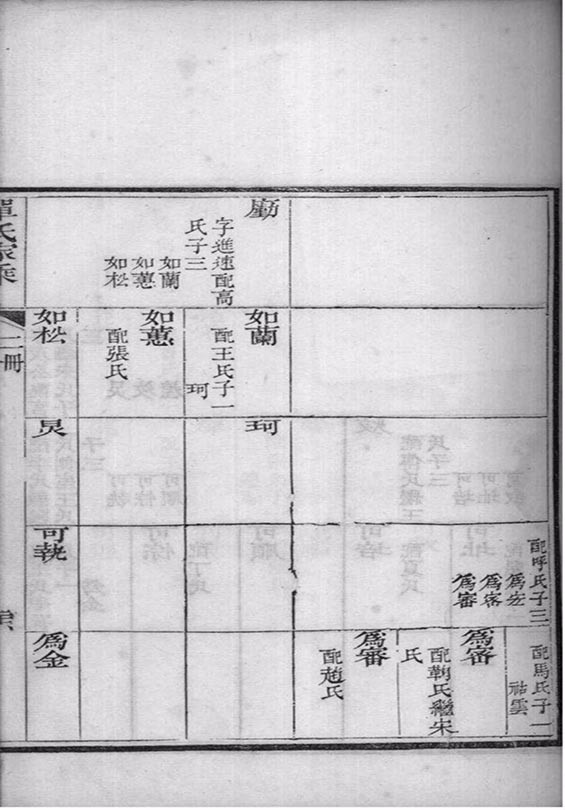 字進速配高
氏子三
如蘭
如蕙
如松
如蘭
配王氏子一
珂
如蕙
配張氏
如松
珂
炅
配呼氏子三
爲宏
爲審
可執
配馬氏子一
祜雲
爲審
配鞠氏繼宋
氏
爲審
配趙氏
爲金
單氏家乘
二冊